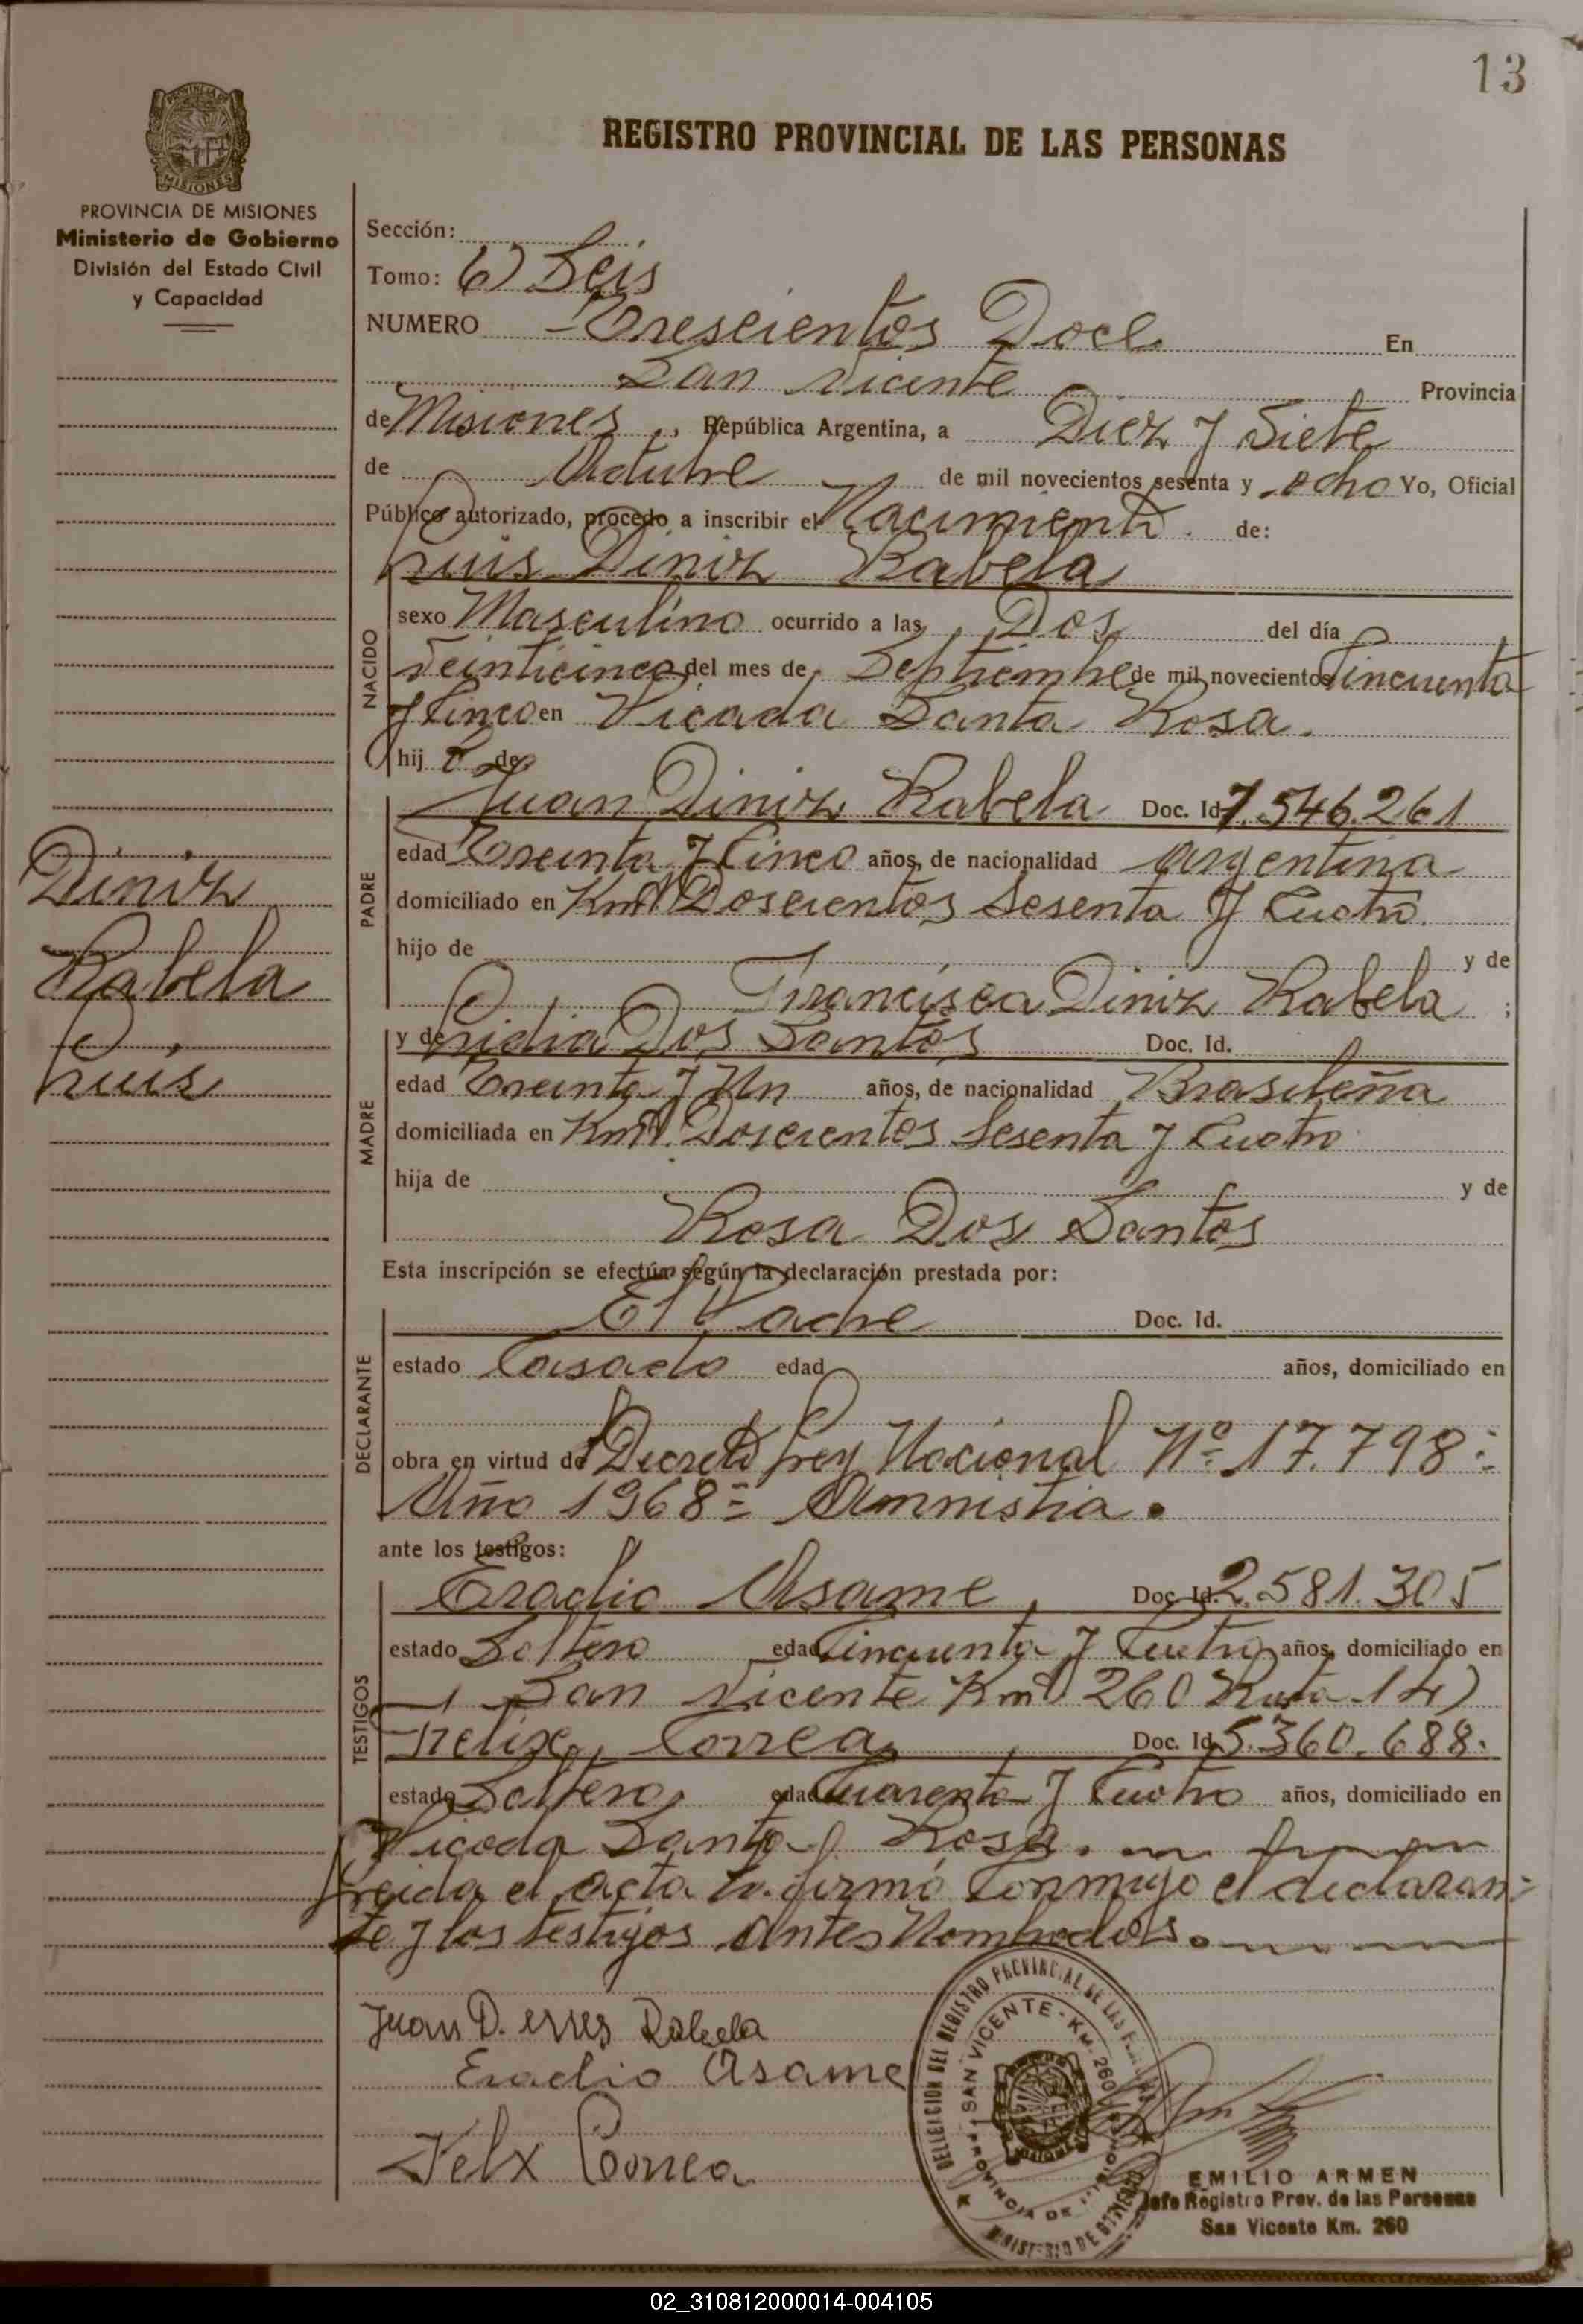 13
REGISTRO PROVINCIAL DE LAS PERSONAS
PROVINCIA DE MISIONES
Ministerio de Gobierno
División del Estado Civil
y Capacidad
Sección:
Tomo: 6) Seis
NUMERO Trescientos Doce. En
San Vicente Provincia
de Misiones, República Argentina, a Diez y Siete
de Octubre de mil novecientos sesenta y ocho Yo, Oficial
Público autorizado, procedo a inscribir el Nacimiento de:
Luis Diniz Rabela
NACIDO
sexo Masculino ocurrido a las Dos del día
Veinticinco del mes de Septiembre de mil novecientos Cincuenta
y Cinco en Picada Santa Rosa.
hij o de
Juan Diniz Rabela Doc. Id 7.546.261
PADRE
edad Treinta y Cinco años, de nacionalidad argentina
domiciliado en Kmt Doscientos Sesenta y Cuatro.
hijo de y de
Francisca Diniz Rabela ;
y de Lidia Dos Santos Doc. Id.
MADRE
edad Treinta y Un años, de nacionalidad Brasileña
domiciliada en Kmt. Doscientos Sesenta y Cuatro
hija de y de
Rosa Dos Santos
Esta inscripción se efectúa según la declaración prestada por:
El Padre Doc. Id.
DECLARANTE
estado Casado edad años, domiciliado en
obra en virtud de Decreto Ley Nacional Nº 17.798=
Año 1968= Amnistia.
ante los testigos:
Eradio Asame, Doc. Id. 2.581.305
TESTIGOS
estado Soltero edad Cincuenta y Cuatro años, domiciliado en
San Vicente Kmt 260 Ruta 14)
Felix Correa, Doc. Id. 5.360.688.
estado Soltero, edad Cuarenta y Cuatro años, domiciliado en
Picada Santa Rosa.
Leida el acta la firmó Conmigo el declaran=
te y los testigos antes Nombrados.
Diniz
Rabela
Luis
Juan D. Rabela
Eradio Asame
Felx Correa
DELEGACION DEL REGISTRO PROVINCIAL DE LAS PERSONAS
SAN VICENTE - KM. 260
PROVINCIA DE MISIONES
MINISTERIO DE GOBIERNO
EMILIO ARMEN
Jefe Registro Prov. de las Personas
San Vicente Km. 260
02_310812000014-004105